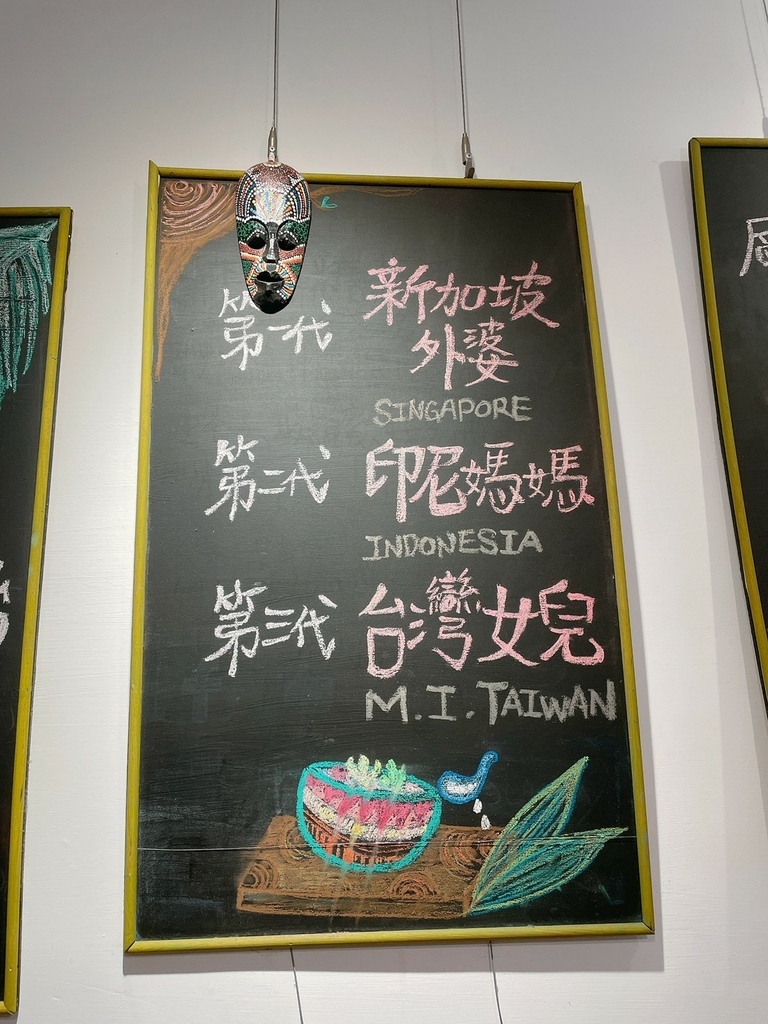 第一代 新加坡
外婆
SINGAPORE
第二代 印尼媽媽
INDONESIA
第三代 台灣女兒
M.I.TAIWAN